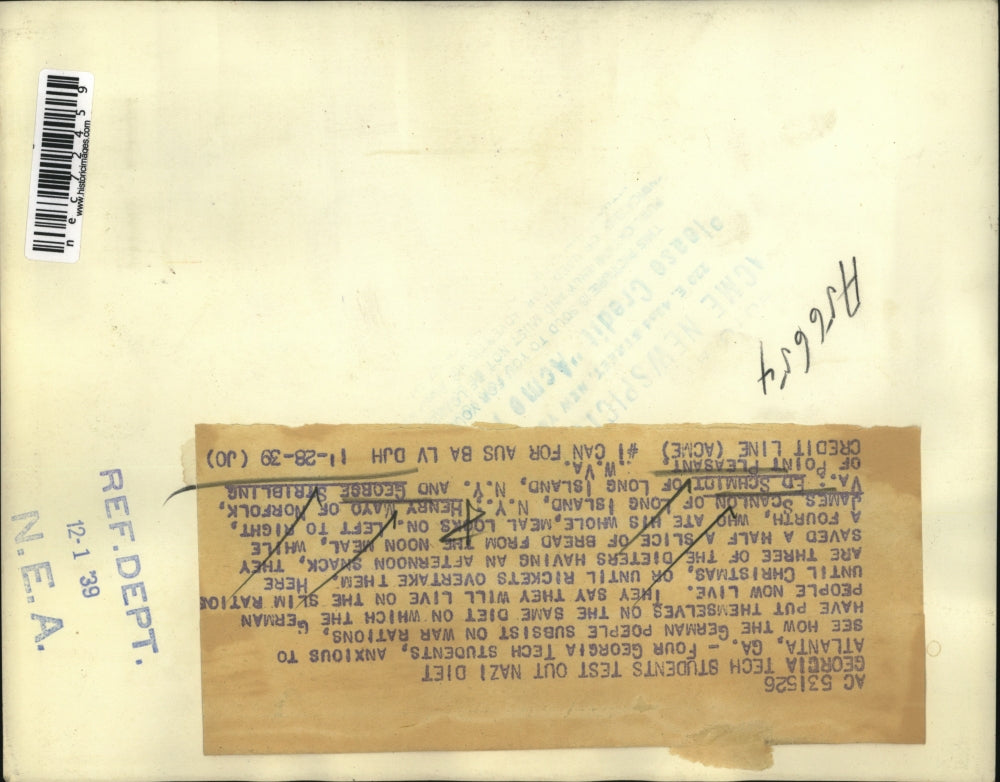 AC 531526
GEORGIA TECH STUDENTS TEST OUT NAZI DIET
ATLANTA, GA. — FOUR GEORGIA TECH STUDENTS, ANXIOUS TO
SEE HOW THE GERMAN POEPLE SUBSIST ON WAR RATIONS,
HAVE PUT THEMSELVES ON THE SAME DIET ON WHICH THE GERMAN
PEOPLE NOW LIVE. THEY SAY THEY WILL LIVE ON THE SLIM RATION
UNTIL CHRISTMAS, OR UNTIL RICKETS OVERTAKE THEM. HERE
ARE THREE OF THE DIETERS HAVING AN AFTERNOON SNACK, THEY
SAVED A HALF A SLICE OF BREAD FROM THE NOON MEAL, WHILE
A FOURTH, WHO ATE HIS WHOLE MEAL LOOKS ON. LEFT TO RIGHT,
JAMES SCANLON OF LONG ISLAND, N.Y. HENRY MAYO OF NORFOLK,
VA. ED SCHMIDT OF LONG ISLAND, N.Y. AND GEORGE STRIBLING
OF POINT PLEASANT, W.VA.
CREDIT LINE (ACME) #1 CAN FOR AUS BA LV DJH 11-28-39 (JO)
REF. DEPT.
12-1 '39
N.E.A.
nec72459
www.historicimages.com
ACME NEWSPICTURES
Credit "Acme"